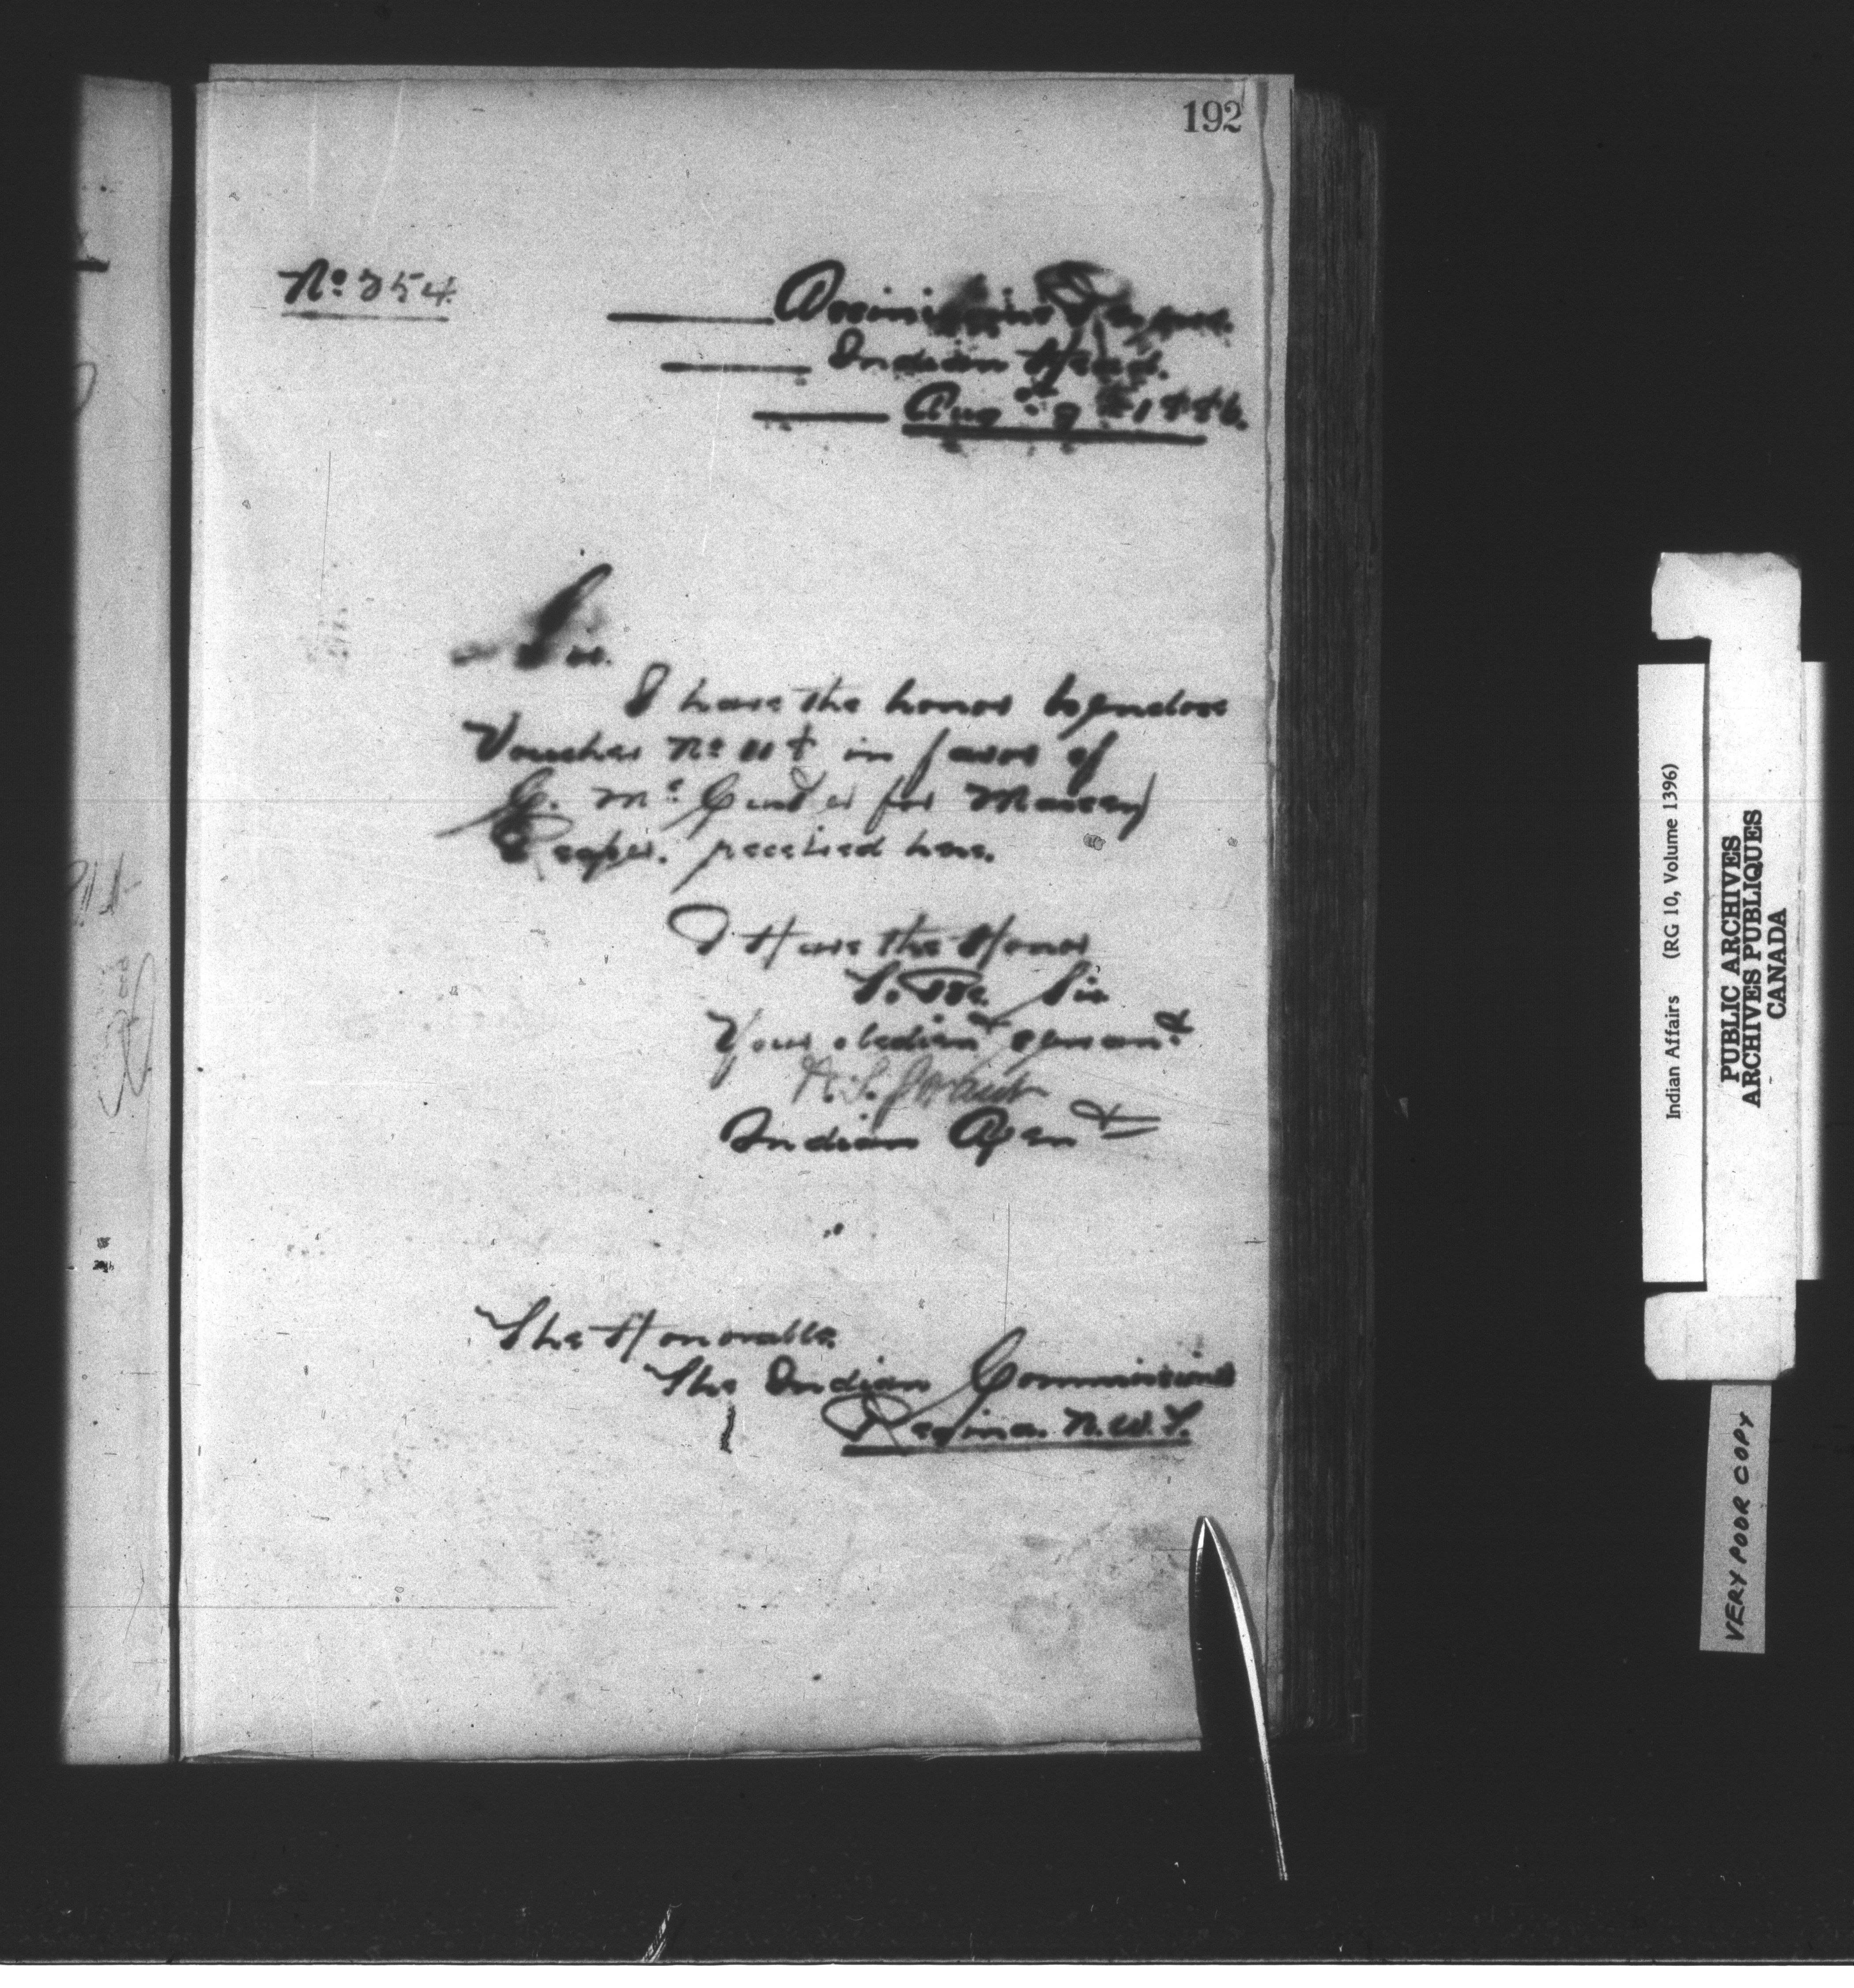 192
No 354.
Assiniboine Reserve.
Indian Head.
Aug st 9 th 1886.
Sir.
I have the honor to enclose
Voucher No 118 in favor of
for Massey
Reaper. received here.
I Have the Honor
To Be Sir
Your obedient servant
Indian Agent
The Honorable.
The Indian Commissioner
Regina. N.W.T.
Indian Affairs (RG 10, Volume 1396)
PUBLIC ARCHIVES
ARCHIVES PUBLIQUES
CANADA
VERY POOR COPY